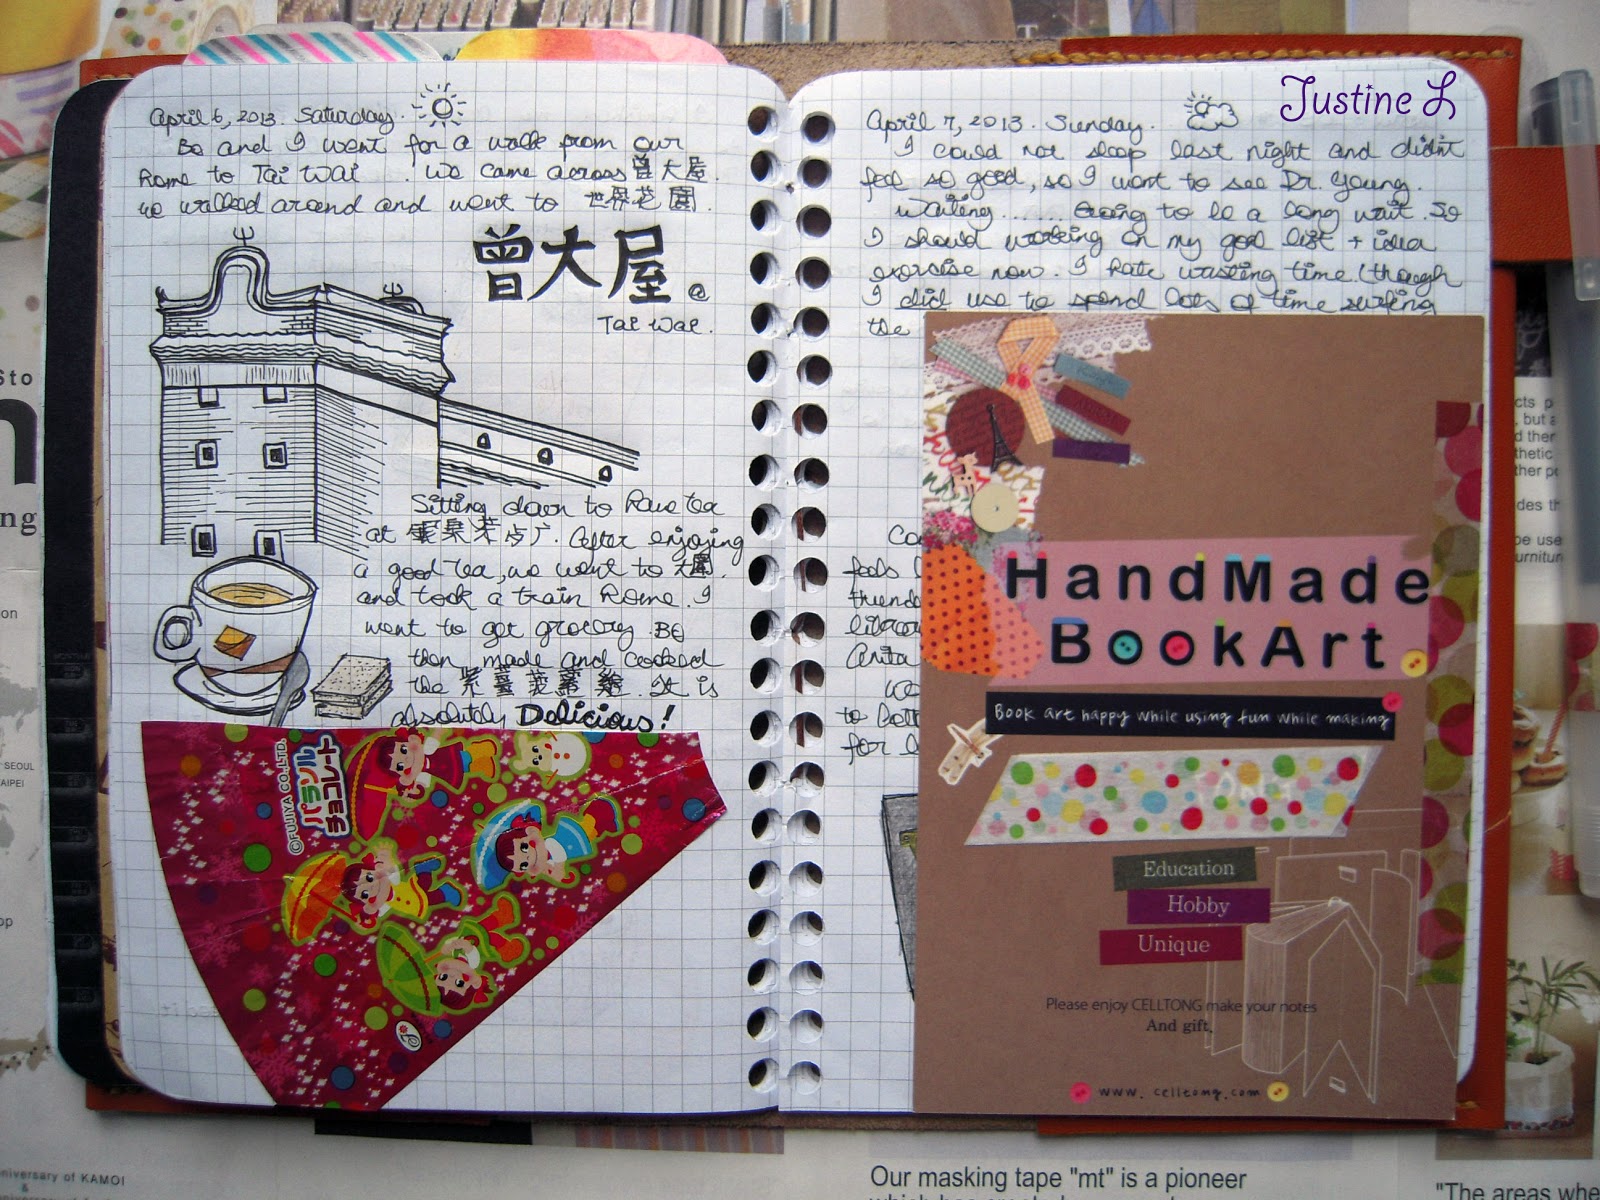 April 6, 2013. Saturday.
Bo and I went for a walk from our
Home to Tai Wai. We came across 曾大屋.
we walked around and went to 世界花園.
曾大屋 @
Tai Wai.
Sitting down to have tea
at 点广. After enjoying
a good tea, we went to 大圍.
and took a train Home. I
went to get grocery. Bo
then made and cooked
the 紫薑菠蘿雞. It is
absolutely Delicious!
©FUJIYA CO.,LTD.
パラソル
チョコレート
Justine L
April 7, 2013. Sunday.
I could not sleep last night and didn't
feel so good, so I went to see Dr. Young.
Waiting....... Going to be a long wait. So
I should working on my goal list + idea
exercise now. I hate wasting time. (though
I did use to spend lots of time surfing
the
feels
friends
Anita
we
to
for
HandMade
BookArt
Book art happy while using fun while making
Education
Hobby
Unique
Please enjoy CELLTONG make your notes
And gift.
www.celltong.com
niversary of KAMOI
&
SEOUL
TAIPEI
Our masking tape "mt" is a pioneer
"The areas whe